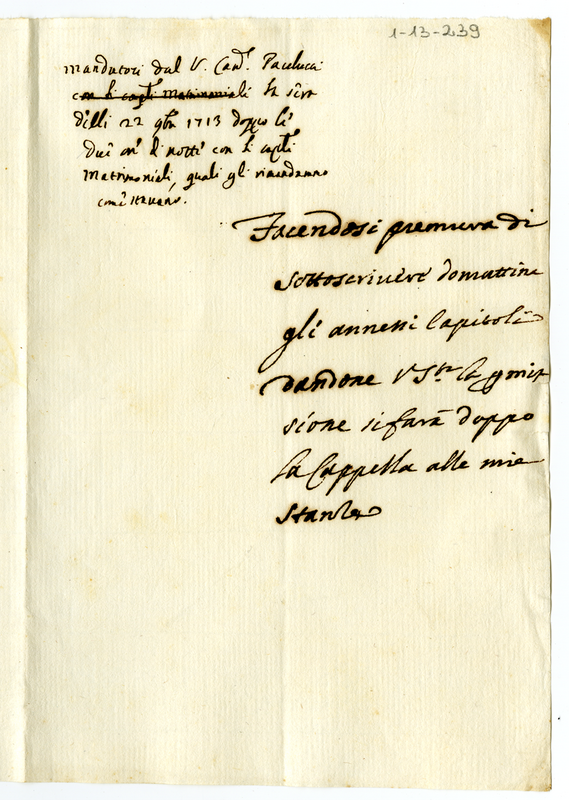 1-13-239
mandatosi dal V. Card. Paulucci
con li capli Matrimoniali la sera
delli 22 9bre 1713 doppo le
due ore di notte con li capli
Matrimoniali, quali gli rimandammo
come stavano.
Facendosi premura di
sottoscrivere domattina
gli annessi Capitoli
dandone V S.ria la pmis
sione si farà doppo
la Cappella alle mie
stanze